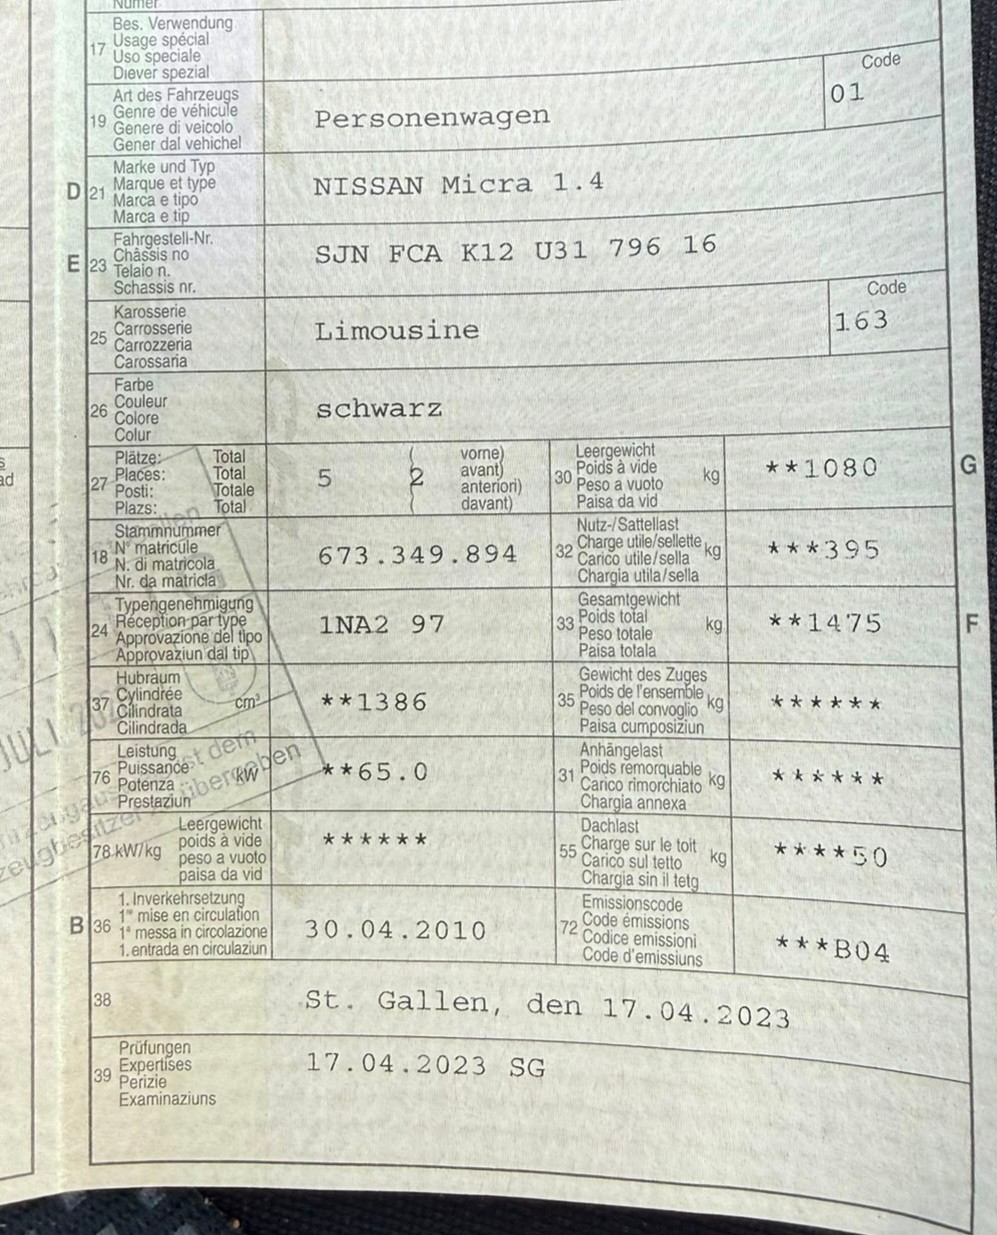 Numer
17 Bes. Verwendung
Usage spécial
Uso speciale
Diever spezial
19 Art des Fahrzeugs
Genre de véhicule
Genere di veicolo
Gener dal vehichel
Personenwagen
Code
01
D 21 Marke und Typ
Marque et type
Marca e tipo
Marca e tip
NISSAN Micra 1.4
E 23 Fahrgestell-Nr.
Châssis no
Telaio n.
Schassis nr.
SJN FCA K12 U31 796 16
25 Karosserie
Carrosserie
Carrozzeria
Carossaria
Limousine
Code
163
26 Farbe
Couleur
Colore
Colur
schwarz
27 Plätze: Total
Places: Total
Posti: Totale
Plazs: Total
5 2
vorne)
avant)
anteriori)
davant)
30 Leergewicht
Poids à vide
Peso a vuoto
Paisa da vid
kg
**1080
G
18 Stammnummer
N° matricule
N. di matricola
Nr. da matricla
673.349.894
32 Nutz-/Sattellast
Charge utile/sellette
Carico utile/sella
Chargia utila/sella
kg
***395
24 Typengenehmigung
Réception par type
Approvazione del tipo
Approvaziun dal tip
1NA2 97
33 Gesamtgewicht
Poids total
Peso totale
Paisa totala
kg
**1475
F
37 Hubraum
Cylindrée
Cilindrata
Cilindrada
cm³
**1386
35 Gewicht des Zuges
Poids de l'ensemble
Peso del convoglio
Paisa cumposiziun
kg
******
76 Leistung
Puissance
Potenza
Prestaziun
kW
**65.0
31 Anhängelast
Poids remorquable
Carico rimorchiato
Chargia annexa
kg
******
78 kW/kg Leergewicht
poids à vide
peso a vuoto
paisa da vid
******
55 Dachlast
Charge sur le toit
Carico sul tetto
Chargia sin il tetg
kg
****50
B 36 1. Inverkehrsetzung
1re mise en circulation
1a messa in circolazione
1. entrada en circulaziun
30.04.2010
72 Emissionscode
Code émissions
Codice emissioni
Code d'emissiuns
***B04
38 St. Gallen, den 17.04.2023
39 Prüfungen
Expertises
Perizie
Examinaziuns
17.04.2023 SG
JULI
ist dem
übergeben